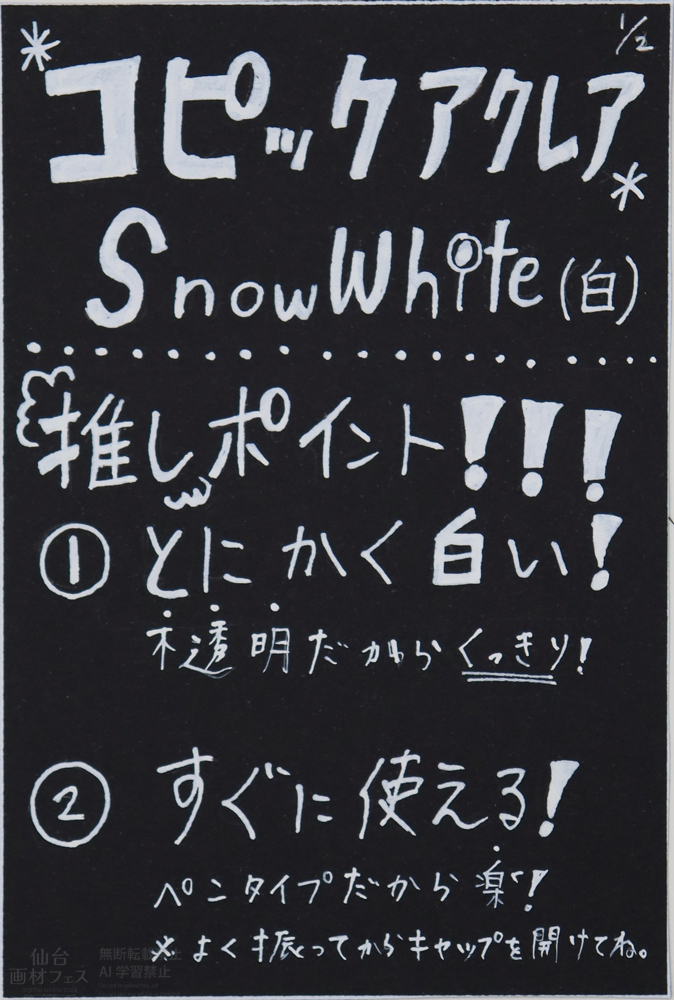 1/2
コピックアクレア
SnowWhite(白)
推しポイント!!!
① とにかく白い!
不透明だからくっきり!
② すぐに使える!
ペンタイプだから楽!
※よく振ってからキャップを開けてね。
仙台
画材フェス
無断転載禁止
AI学習禁止